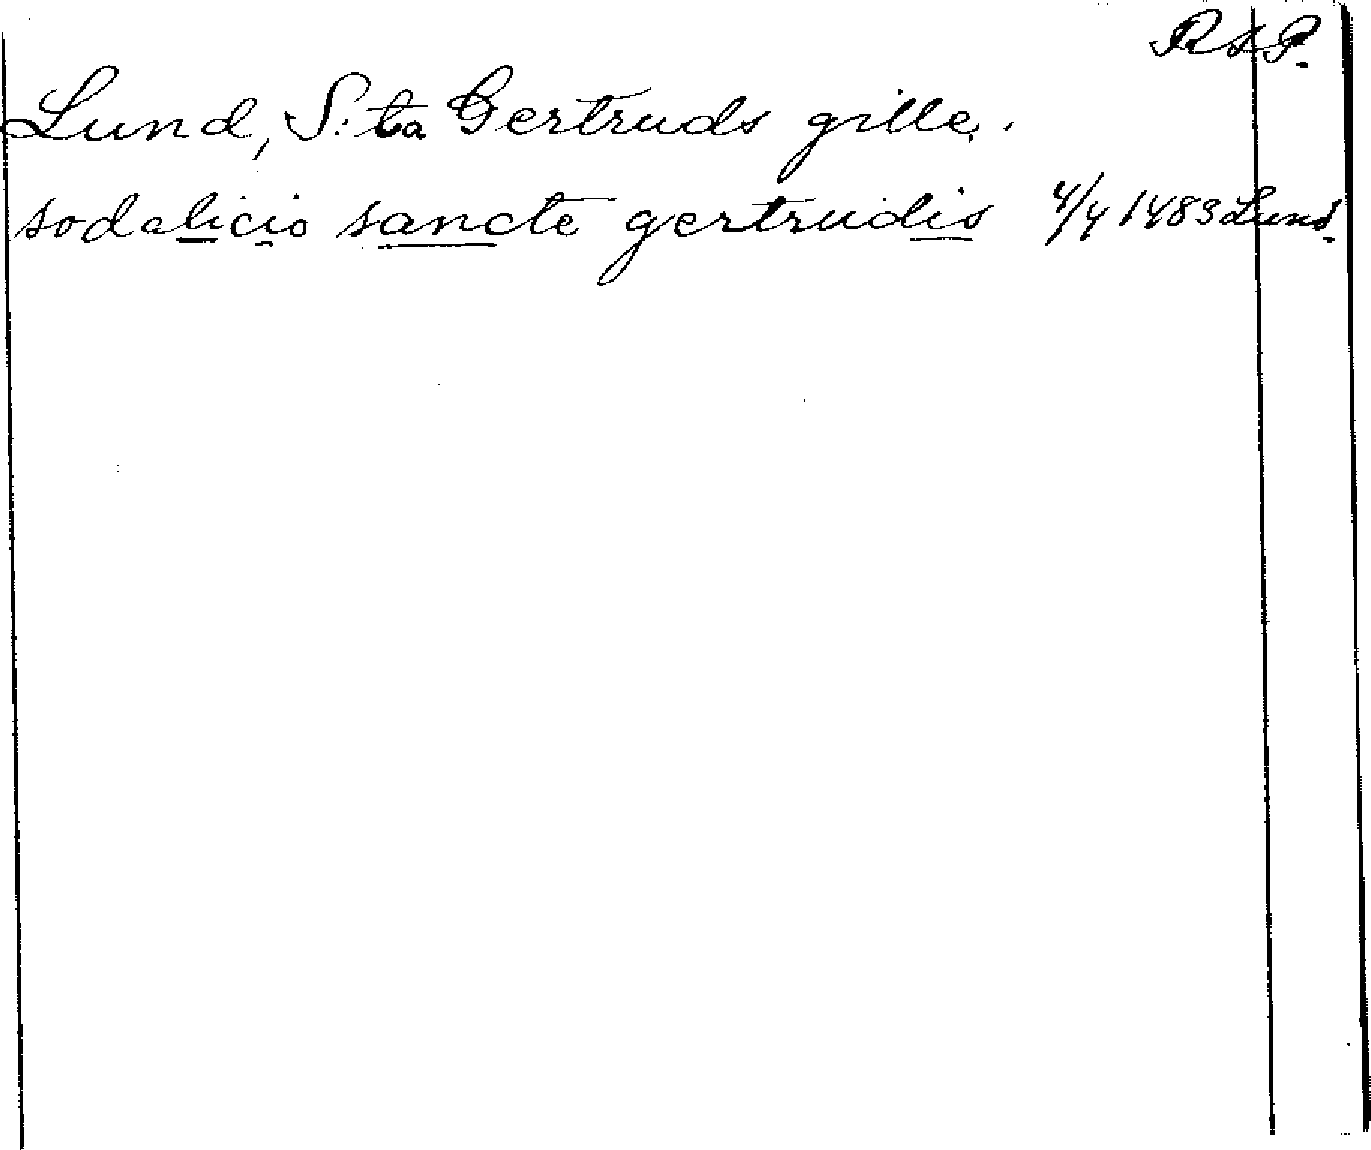 RAP.
Lund, S:ta Gertruds gille.
sodalicio sancte gertrudis 4/4 1483 Lund.